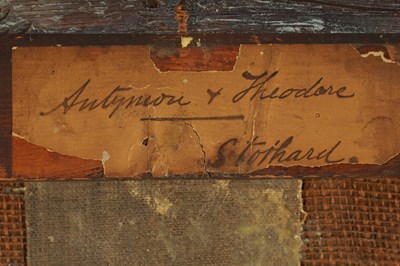 Antymon & Theodore
Stothard.